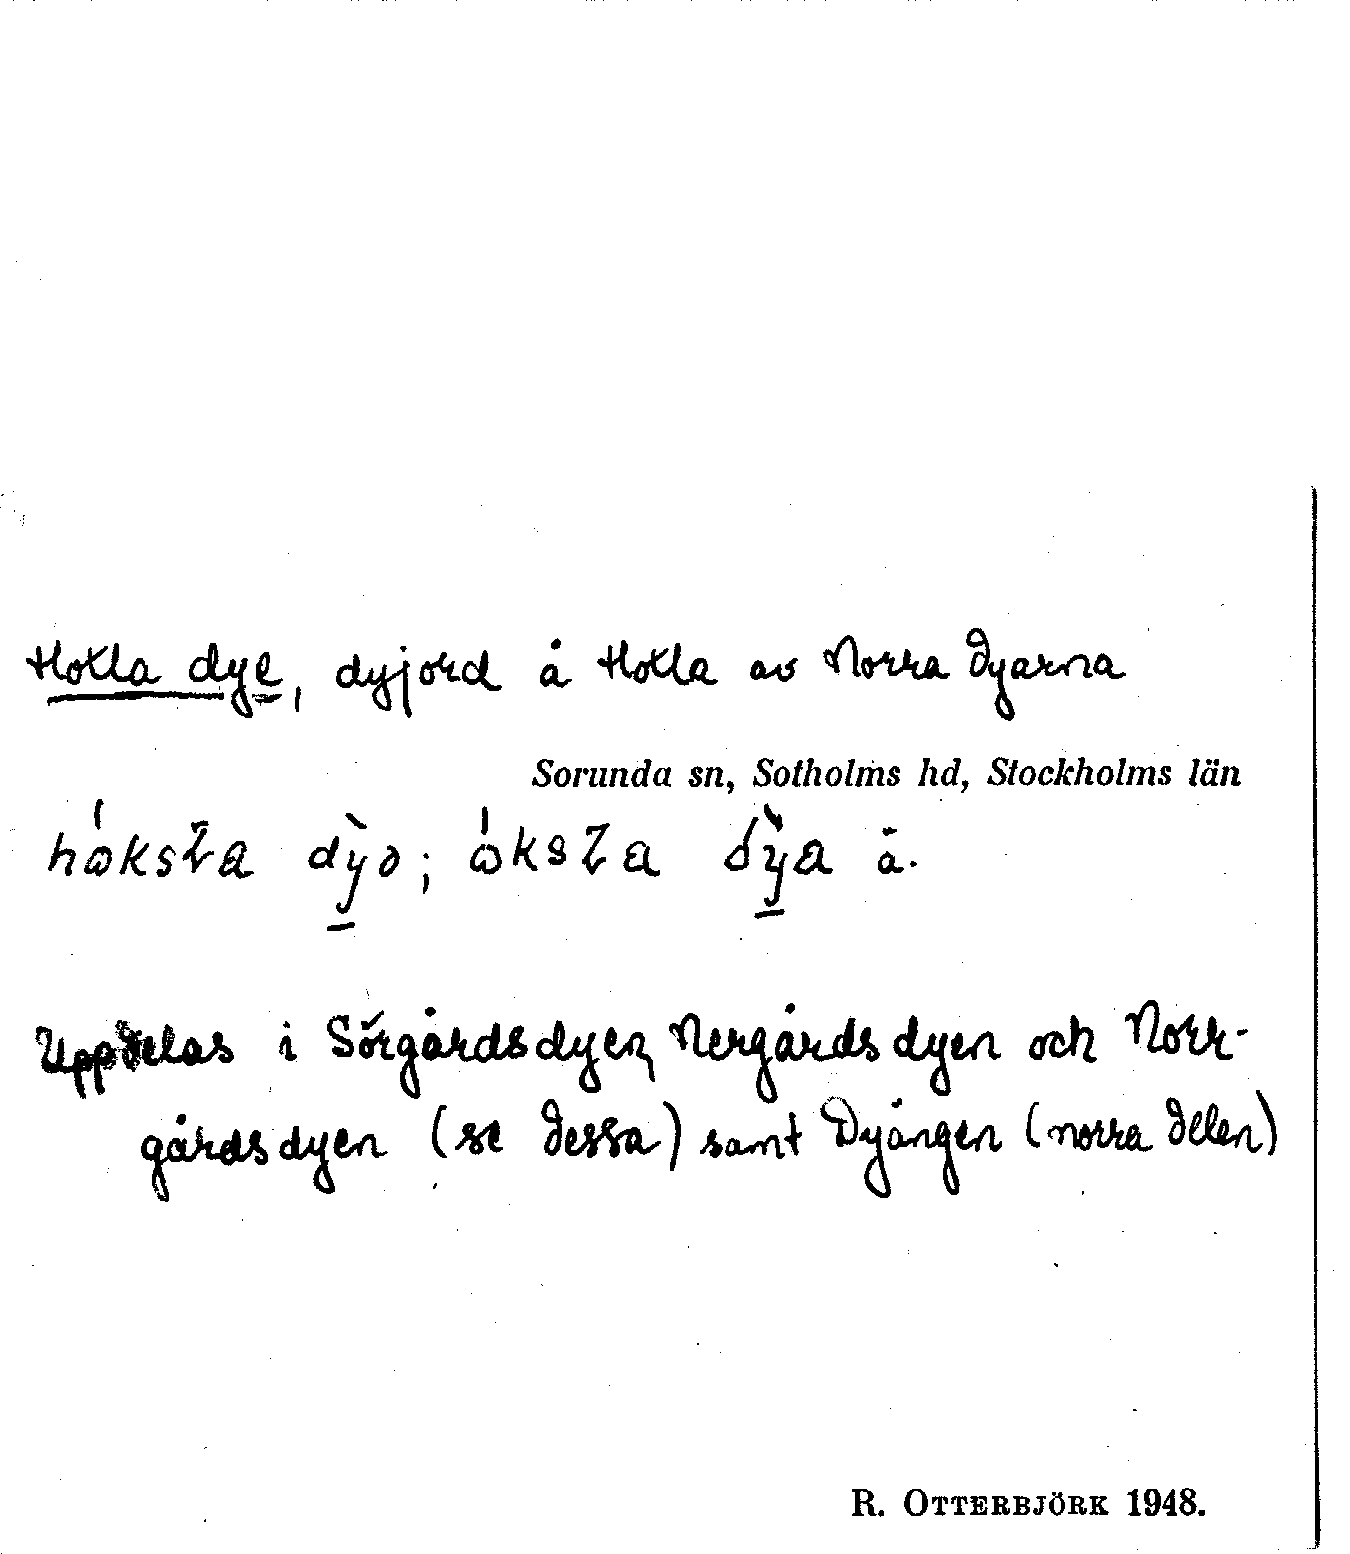 Hoxla dye, dyjord å Hoxla av Norra Dyarna
Sorunda sn, Sotholms hd, Stockholms län
hóksɽa dỳə; óksɽa dỳa å.
Uppdelas i Sörgårdsdyen, Nergårdsdyen och Norr-
gårdsdyen (se dessa) samt Dyängen (norra delen)
R. OTTERBJÖRK 1948.